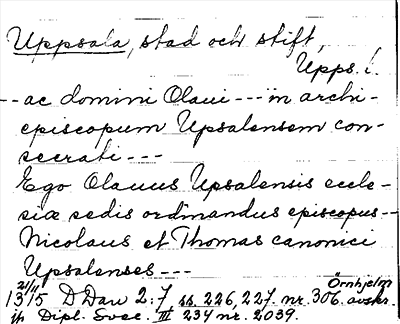 Uppsala, stad och stift,
Upps. l.
-- ac domini Olaui --- in archi-
episcopum Upsalensem con-
secrati ---
Ego Olauus Upsalensis eccle-
siæ sedis ordinandus episcopus --
Nicolaus et Thomas canonici
Upsalenses ---
21/11 Örnhjelm
1315 D Dan 2:7 ss. 226, 227. nr. 306. avskr.
jfr Dipl. Svec. III 234 nr. 2039.